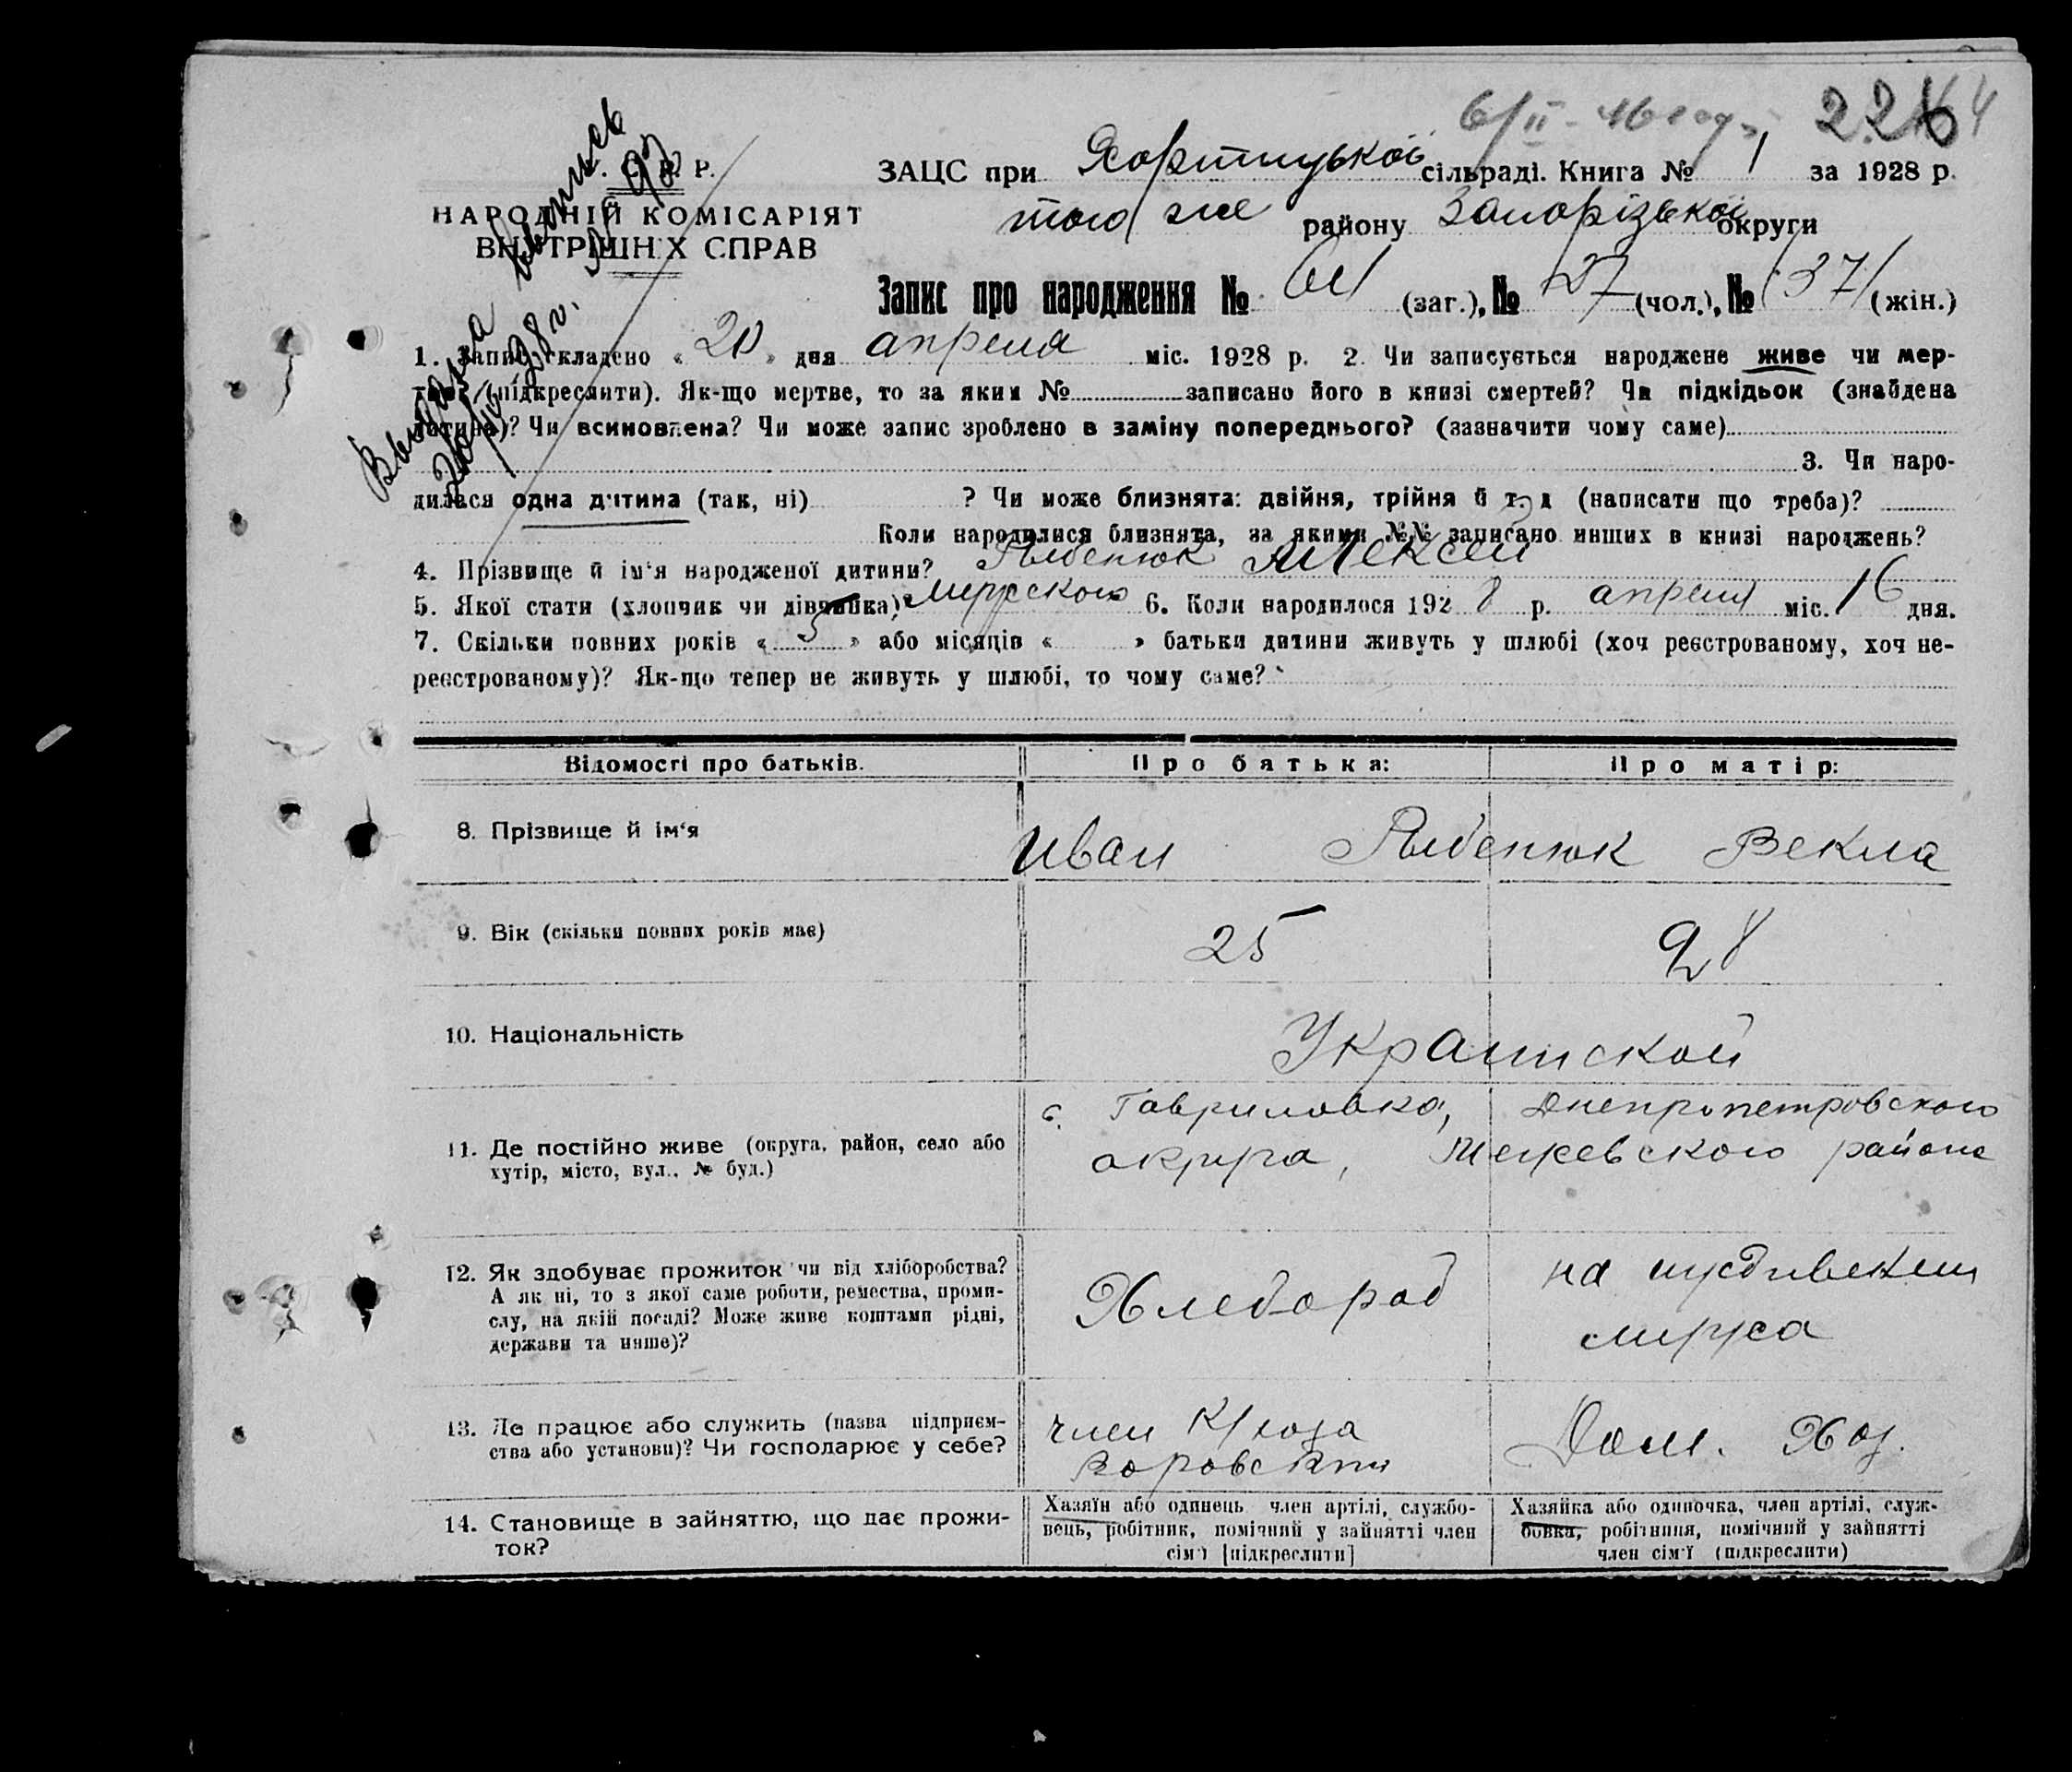 226
ЗАЦС при Хортицькой сільраді. Книга № 1 за 1928 р.
того же району Запорізької округи
НАРОДНІЙ КОМІСАРІЯТ
ВНУТРІШНІХ СПРАВ
Запис про народження № (заг.), № 27 (чол.), № 37 (жін.)
1. Запис складено « 20 » дня апреля міс. 1928 р. 2. Чи записується народжене живе чи мер-
тве (підкреслити). Як-що мертве, то за яким № записано його в книзі смертей? Чи підкідьок (знайдена
дитина)? Чи всиновлена? Чи може запис зроблено в заміну попереднього? (зазначити чому саме)
3. Чи наро-
дилася одна дитина (так, ні) ? Чи може близнята: двійня, трійня й т. д (написати що треба)?
Коли народилися близнята, за якими №№ записано инших в книзі народжень?
4. Прізвище й ім'я народженої дитини? Алексей
5. Якої стати (хлопчик чи дівчинка)? Мужского 6. Коли народилося 1928 р. апреля міс. 16 дня.
7. Скільки повних років « 5 » або місяців « » батьки дитини живуть у шлюбі (хоч реєстрованому, хоч не-
реєстрованому)? Як-що тепер не живуть у шлюбі, то чому саме?
Відомості про батьків. Про батька: Про матір:
8. Прізвище й ім'я Иван Векла
9. Вік (скільки повних років має) 25 28
10. Національність Украинской
11. Де постійно живе (округа, район, село або
хутір, місто, вул., № буд.)
с. Гавриловка, Днепропетровского
округа, Межевского района
12. Як здобуває прожиток чи від хліборобства?
А як ні, то з якої саме роботи, ремества, проми-
слу, на якій посаді? Може живе коштами рідні,
держави та инше)?
Хлебороб
на иждивении
мужа
13. Де працює або служить (назва підприєм-
ства або установи)? Чи господарює у себе?
член
Дом. Хоз.
14. Становище в зайняттю, що дає прожи-
ток?
Хазяїн або одинець член артілі, службо-
вець, робітник, помічний у зайнятті член
сім'ї [підкреслити]
Хазяйка або одиночка, член артілі, служ-
бовка, робітниця, помічний у зайнятті
член сім'ї (підкреслити)